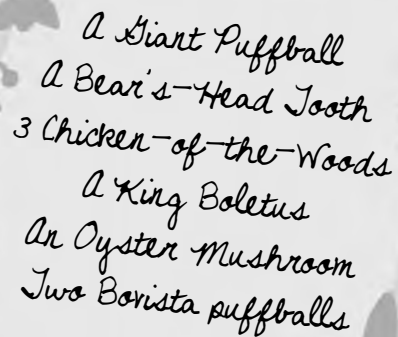 A Giant Puffball
A Bear's-Head Tooth
3 Chicken-of-the-Woods
A King Boletus
An Oyster Mushroom
Two Bovista puffballs